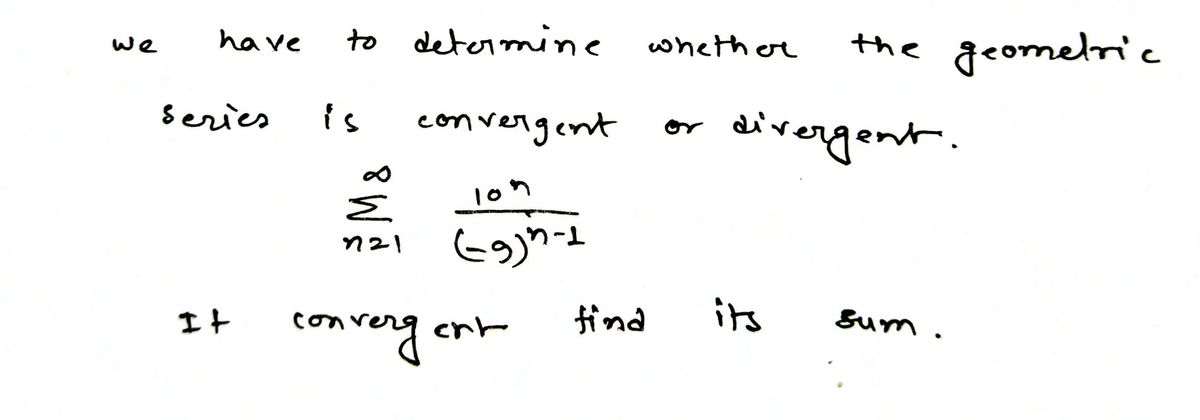 we have to determine whether the geometric
series is convergent or divergent.
∞
Σ 10^n / (-9)^(n-1)
n=1
If convergent find its sum.